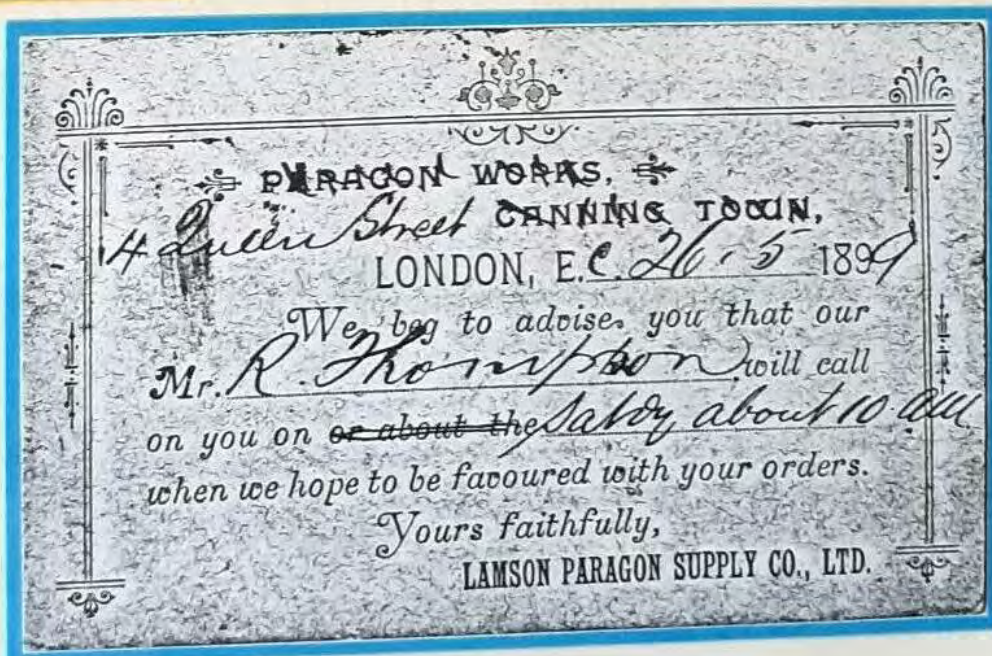 PARAGON WORKS,
4 Queen Street CANNING TOWN,
LONDON, E.C. 26.5 1899
We beg to advise you that our
Mr. R. Thompson will call
on you on or about the Satdy about 10 am
when we hope to be favoured with your orders.
Yours faithfully,
LAMSON PARAGON SUPPLY CO., LTD.